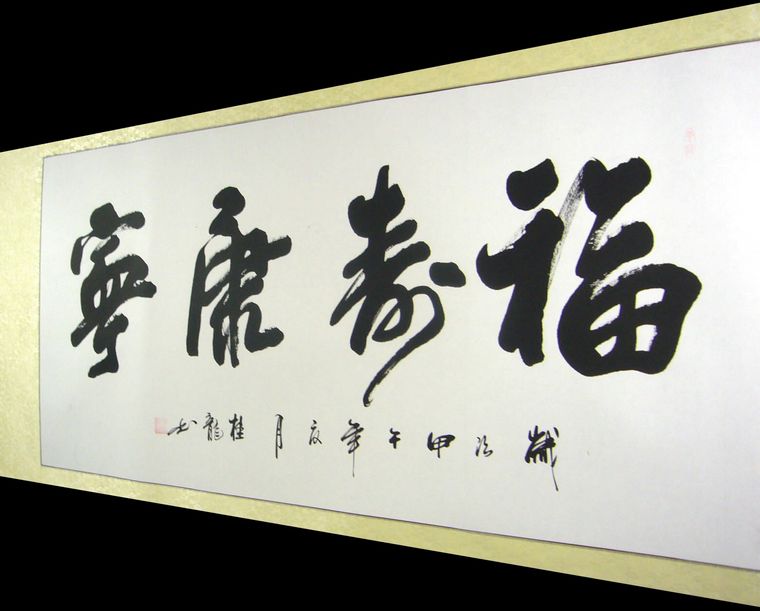 福寿康寧
歲次甲午年夏月 桂龍书